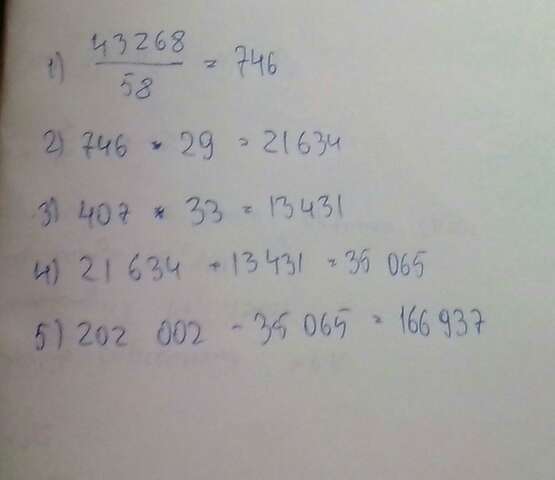 1) 43268/58 = 746
2) 746 * 29 = 21634
3) 407 * 33 = 13431
4) 21 634 + 13431 = 35 065
5) 202 002 - 35 065 = 166 937